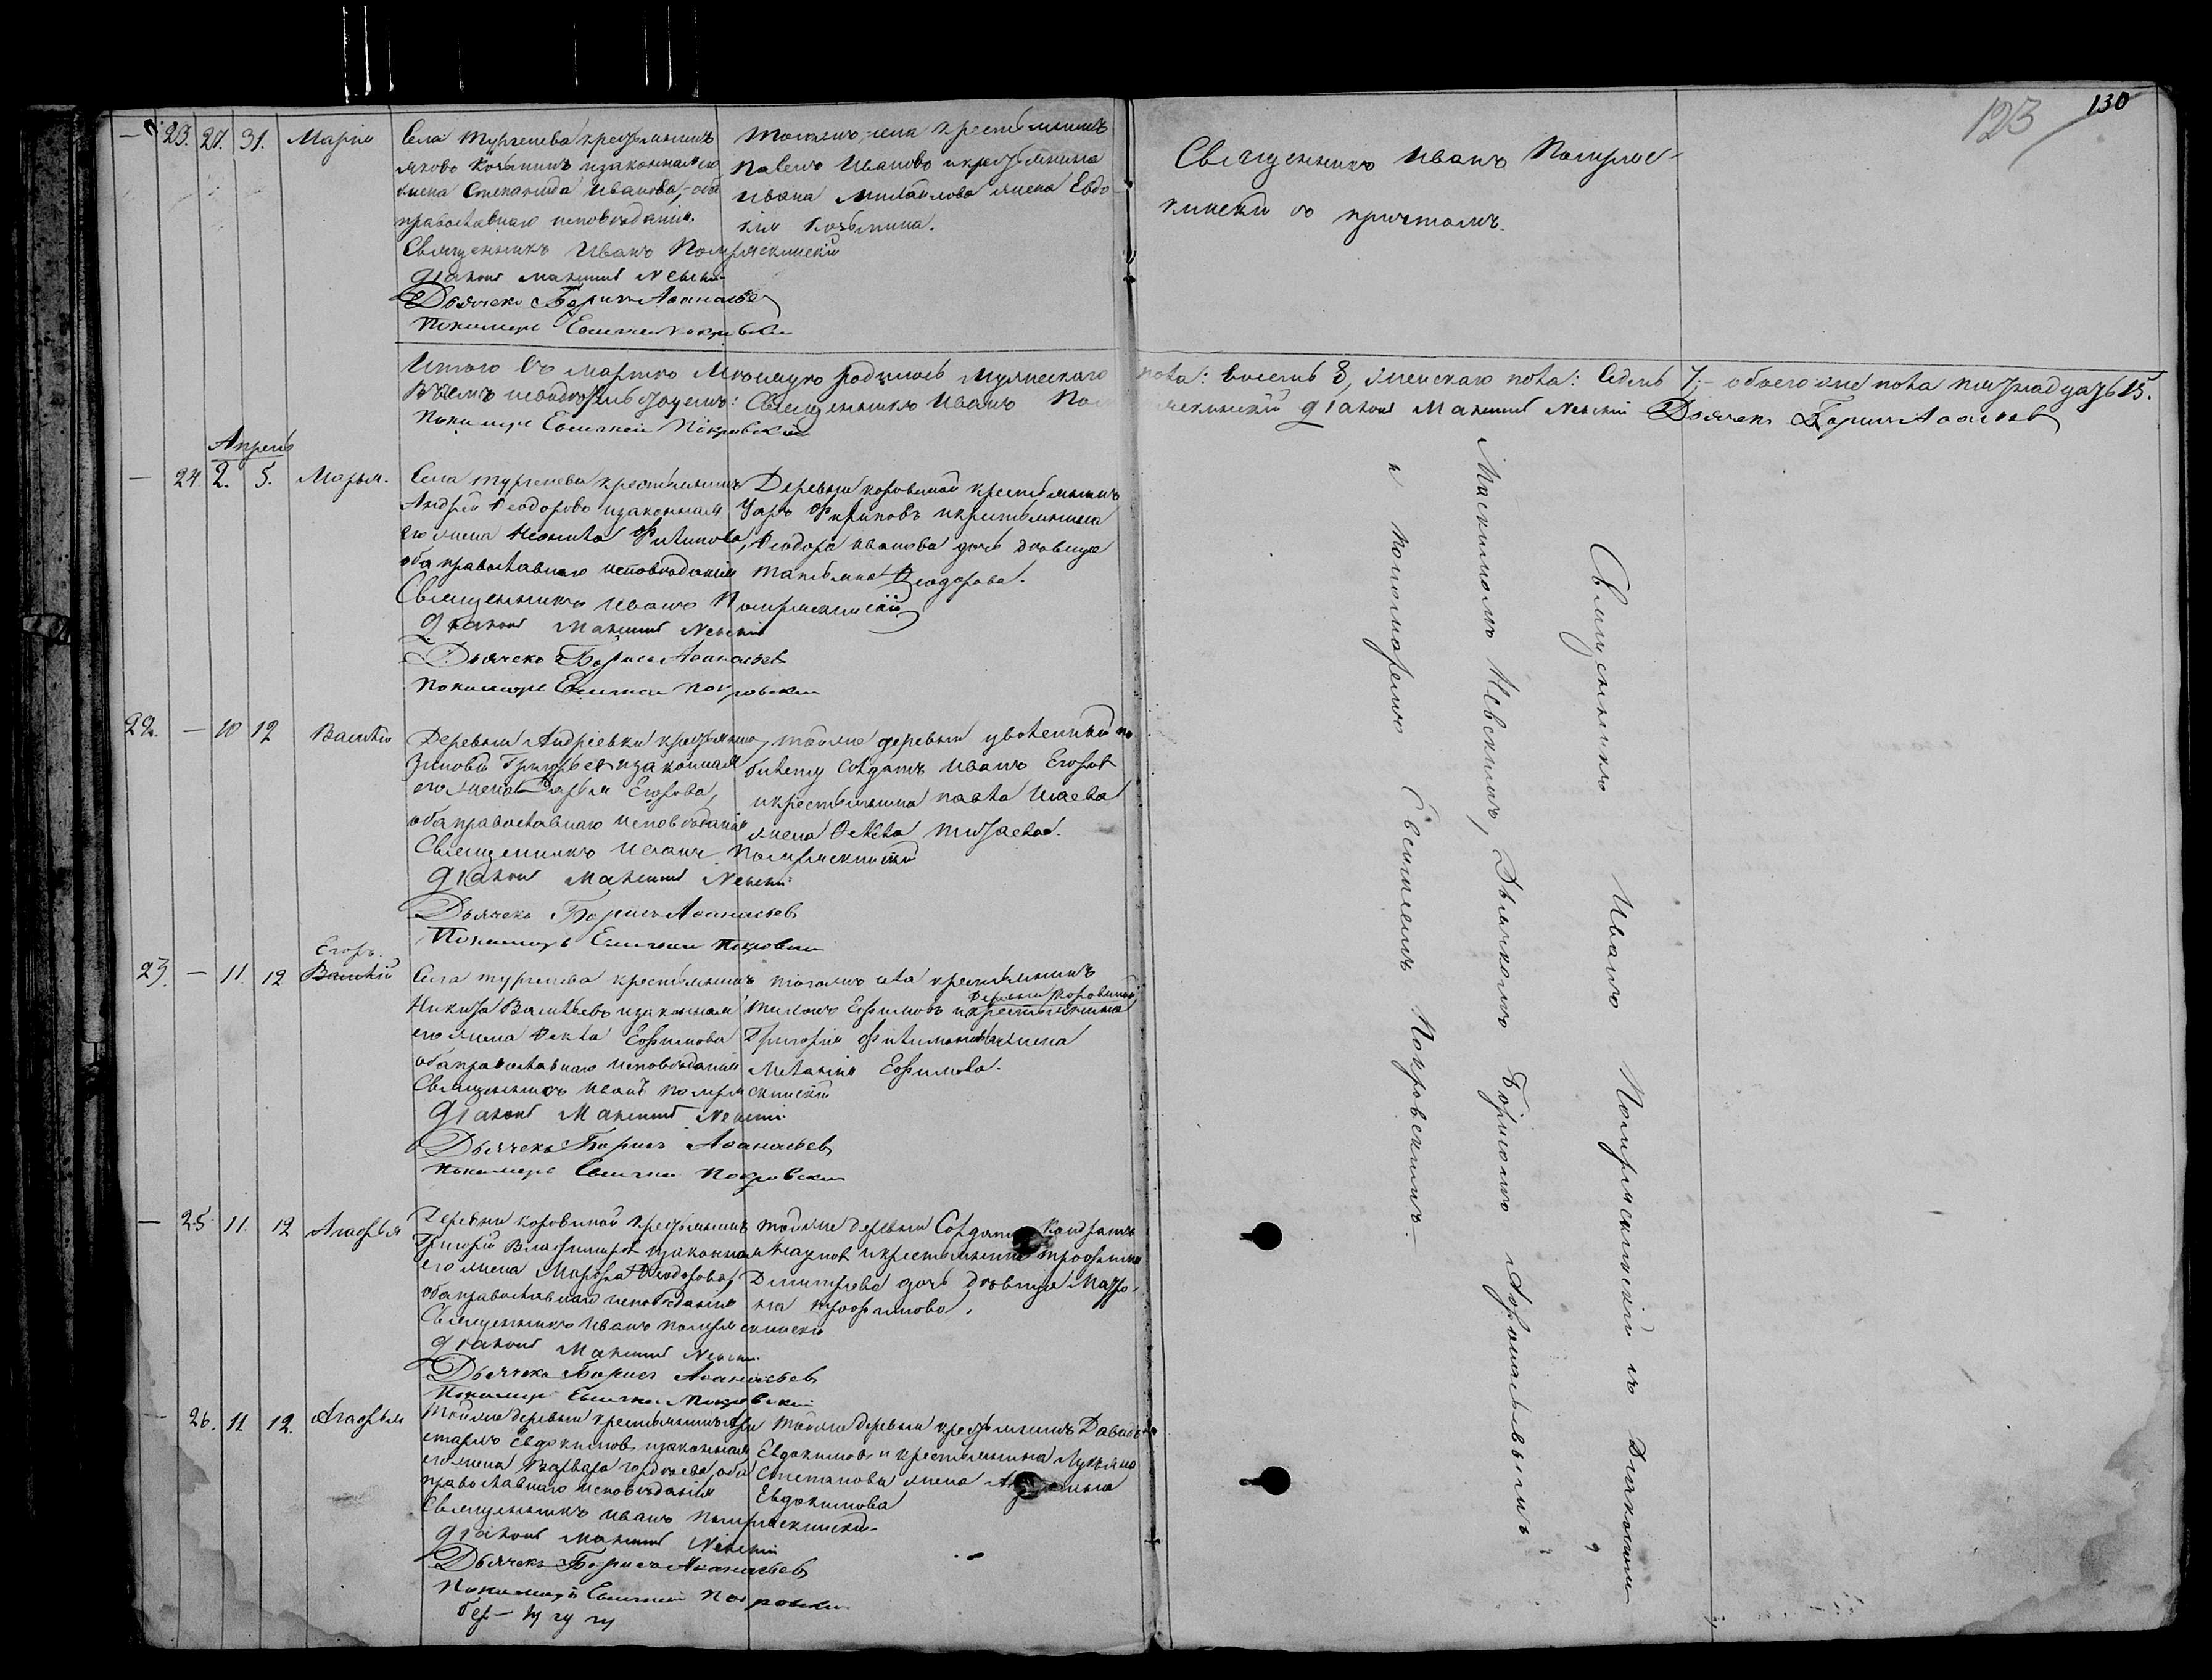 130
123
— 23. 27. 31. Марія
Села Тургенева крестьянинъ
Яковъ Козминъ и законная его
жена Степанида Иванова, оба
православнаго исповѣданія.
Священникъ Иванъ Помряскинскій
Діаконъ Максимъ Невскій
Дьячекъ Борисъ Аѳанасьев
Пономарь Евсигней Покровскій
тогоже села крестьянинъ
Павелъ Ивановъ и крестьянина
Ивана Михайлова жена Евдо
кія Козьмина.
Священникъ Иванъ Помряс-
кинскій съ причтомъ.
Итого въ мартѣ мѣсяцѣ родилось мужескаго пола: восемь 8, женскаго пола: седмь 7; — обоего же пола пятнадцать 15.
Священникъ Иванъ Помряскинскій Діаконъ Максимъ Невскій Дьячекъ Борисъ Аѳанасьев
Пономарь Евсигней Покровскій
Апрель
— 24. 2. 5. Марья.
Села Тургенева крестьянинъ
Андрей Ѳеодоровъ и законная
его жена Неонила Филипова,
оба православнаго исповѣданія
Священникъ Иванъ Помряскинскій
Діаконъ Максимъ Невскій
Дьячекъ Борисъ Аѳанасьев
Пономарь Евсигней Покровскій
Деревни Коровиной крестьянинъ
Уаръ и крестьянина
Ѳеодора Иванова дочь дѣвица
Татьяна Ѳеодорова.
22. — 10 12 Василій
Деревни Андреевки крестьянинъ
Зиновій Григорьев и законная
его жена Дарья Егорова,
оба православнаго исповѣданія
Священникъ Иванъ Помряскинскій
Діаконъ Максимъ Невскій
Дьячекъ Борисъ Аѳанасьев
Пономарь Евсигней Покровскій
тойже деревни уволенный по
билету солдатъ Иванъ Егоров
и крестьянина Павла Исаева
жена Ѳекла
Егоръ.
23. — 11. 12 Василій
Села Тургенева крестьянинъ
Никита Васильевъ и законная
его жена Ѳекла Ефимова
оба православнаго исповѣданія
Священникъ Иванъ Помряскинскій
Діаконъ Максимъ Невскій
Дьячекъ Борисъ Аѳанасьев
Пономарь Евсигней Покровскій
тогоже села крестьянинъ
деревни Коровиной
Ефимовъ и крестьянина
Григорія жена
Меланія Ефимова.
— 25 11. 12 Агафья
Деревни Коровиной крестьянинъ
Григорій Владимиров и законная
его жена Марѳа Ѳеодорова,
оба православнаго исповѣданія
Священникъ Иванъ Помряскинскій
Діаконъ Максимъ Невскій
Дьячекъ Борисъ Аѳанасьев
Пономарь Евсигней Покровскій
тойже деревни солдатъ Кондратъ
Карпов и крестьянина Трофима
Димитрева дочь дѣвица Матро-
на Трофимова.
— 26. 11 12. Агафья
Тойже деревни крестьянинъ Ари
стархъ Евдокимовъ и законная
его жена Варвара Гордѣева, оба
православнаго исповѣданія
Священникъ Иванъ Помряскинскій
Діаконъ Максимъ Невскій
Дьячекъ Борисъ Аѳанасьев
Пономарь Евсигней Покровскій
тойже деревни крестьянинъ Давидъ
Евдокимовъ и крестьянина Лукьяна
Степанова жена
Евдокимова
Священникъ Иванъ Помряскинскій съ Діакономъ
Максимомъ Невскимъ, Дьячкомъ Борисомъ Аѳанасьевымъ
и Пономаремъ Евсигнеемъ Покровскимъ.